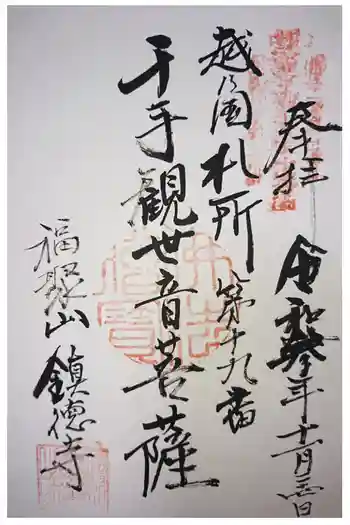 奉拝　令和参年十一月　日
越乃国札所第十九番
千手觀世音菩薩
福聚山　鎮徳寺